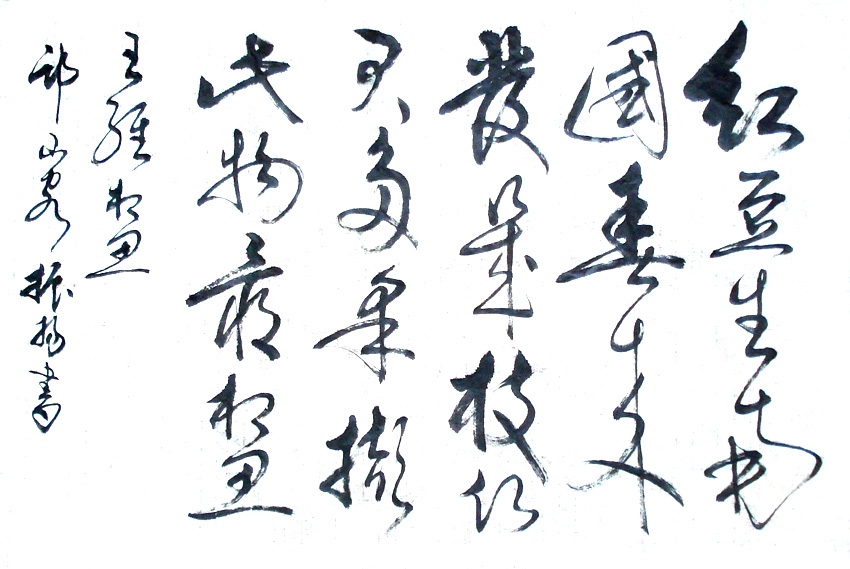 紅豆生南
國春來
發幾枝願
君多采擷
此物最相思
王維相思
山客振揚書